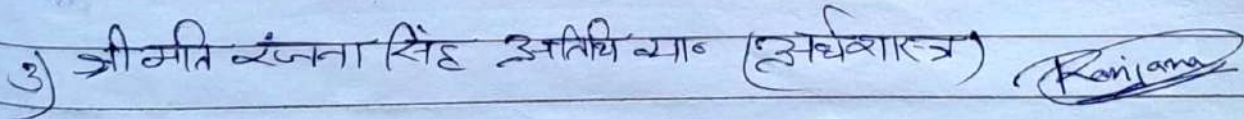 3) श्रीमति रंजना सिंह अतिथि व्या० (अर्थशास्त्र) Ranjana